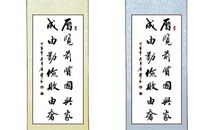 歷覽前賢國與家
成由勤儉敗由奢
歷覽前賢國與家
成由勤儉敗由奢